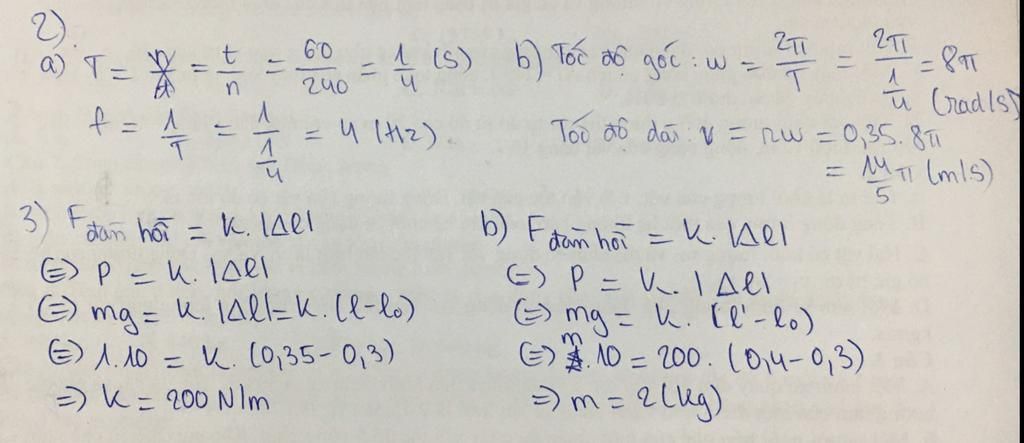 2)
a) T = n/A = t/n = 60/240 = 1/4 (s)
f = 1/T = 1/(1/4) = 4 (Hz)
b) Tốc độ góc: ω = 2π/T = 2π/(1/4) = 8π (rad/s)
Tốc độ dài: v = rω = 0,35. 8π
= 14/5 π (m/s)
3) F đàn hồi = k. |Δl|
(=) P = k. |Δl|
(=) mg = k. |Δl| = k. (l - l₀)
(=) 1.10 = k. (0,35 - 0,3)
=) k = 200 N/m
b) F đàn hồi = k. |Δl|
(=) P = k. |Δl|
(=) mg = k. (l' - l₀)
(=) m.10 = 200. (0,4 - 0,3)
=) m = 2 (kg)